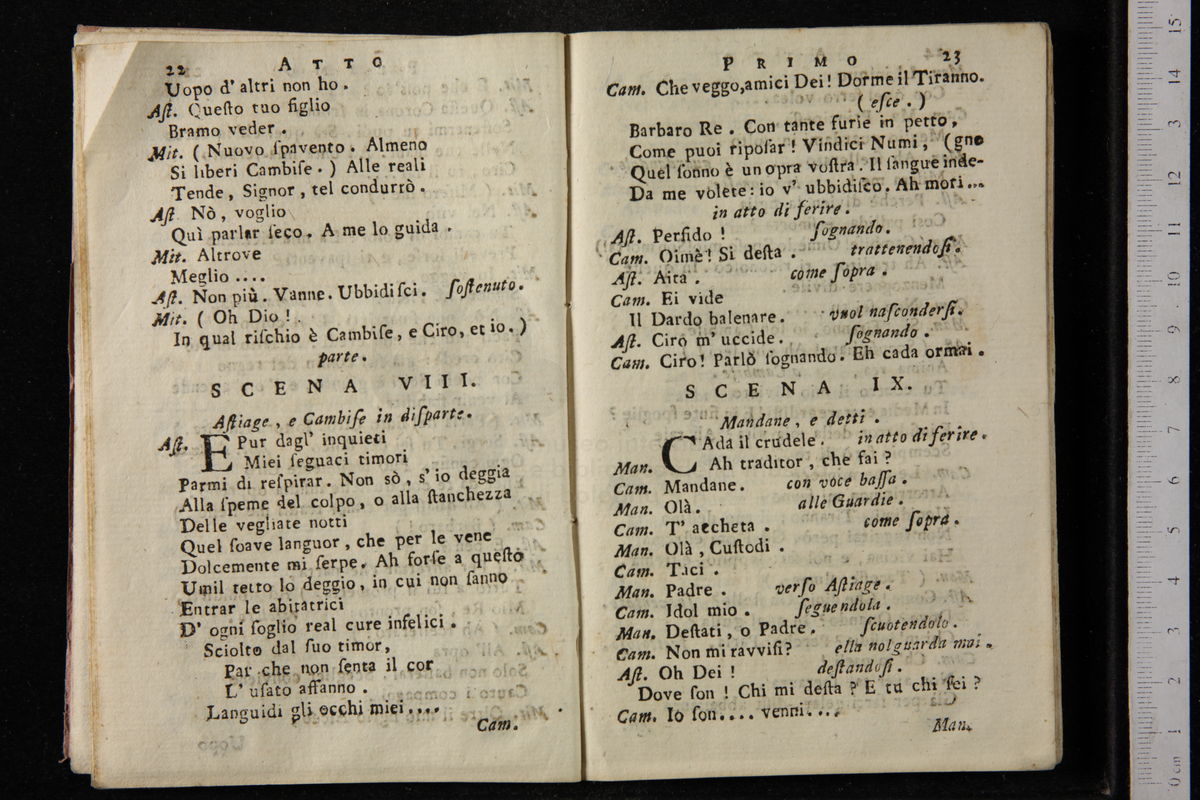 22 ATTO
Uopo d' altri non ho.
Aſt. Queſto tuo figlio
Bramo veder.
Mit. ( Nuovo ſpavento. Almeno
Si liberi Cambiſe. ) Alle reali
Tende, Signor, tel condurrò.
Aſt. Nò, voglio
Quì parlar ſeco. A me lo guida.
Mit. Altrove
Meglio ....
Aſt. Non più. Vanne. Ubbidiſci. ſoſtenuto.
Mit. ( Oh Dio!
In qual riſchio è Cambiſe, e Ciro, et io. )
parte.
SCENA VIII.
Aſtiage, e Cambiſe in diſparte.
Aſt. E Pur dagl' inquieti
Miei ſeguaci timori
Parmi di reſpirar. Non sò, s' io deggia
Alla ſpeme del colpo, o alla ſtanchezza
Delle vegliate notti
Quel ſoave languor, che per le vene
Dolcemente mi ſerpe. Ah forſe a queſto
Umil tetto lo deggio, in cui non ſanno
Entrar le abitatrici
D' ogni ſoglio real cure infelici.
Sciolto dal ſuo timor,
Par che non ſenta il cor
L' uſato affanno.
Languidi gli occhi miei....
Cam.
PRIMO 23
Cam. Che veggo, amici Dei! Dorme il Tiranno.
( eſce. )
Barbaro Re. Con tante furie in petto,
Come puoi ripoſar! Vindici Numi, (gno
Quel ſonno è un opra voſtra. Il ſangue inde-
Da me volete: io v' ubbidiſco. Ah mori...
in atto di ferire.
Aſt. Perfido! ſognando.
Cam. Oimè! Si deſta. trattenendoſi.
Aſt. Aita. come ſopra.
Cam. Ei vide
Il Dardo balenare. vuol naſconderſi.
Aſt. Ciro m' uccide. ſognando.
Cam. Ciro! Parlò ſognando. Eh cada ormai.
SCENA IX.
Mandane, e detti.
CAda il crudele. in atto di ferire.
Man. Ah traditor, che fai?
Cam. Mandane. con voce baſſa.
Man. Olà. alle Guardie.
Cam. T' accheta. come ſopra.
Man. Olà, Cuſtodi.
Cam. Taci.
Man. Padre. verſo Aſtiage.
Cam. Idol mio. ſeguendola.
Man. Deſtati, o Padre. ſcuotendolo.
Cam. Non mi ravviſi? ella nol guarda mai.
Aſt. Oh Dei! deſtandoſi.
Dove ſon! Chi mi deſta? E tu chi ſei?
Cam. Io ſon.... venni....
Man.